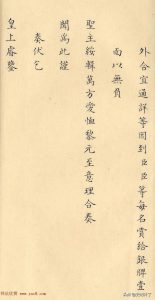 外合宜通詳等因到臣臣等每名賞給銀牌壹
面以無負
聖主綏輯萬方愛恤黎元至意理合奏
聞爲此謹
奏伏乞
皇上睿鑒